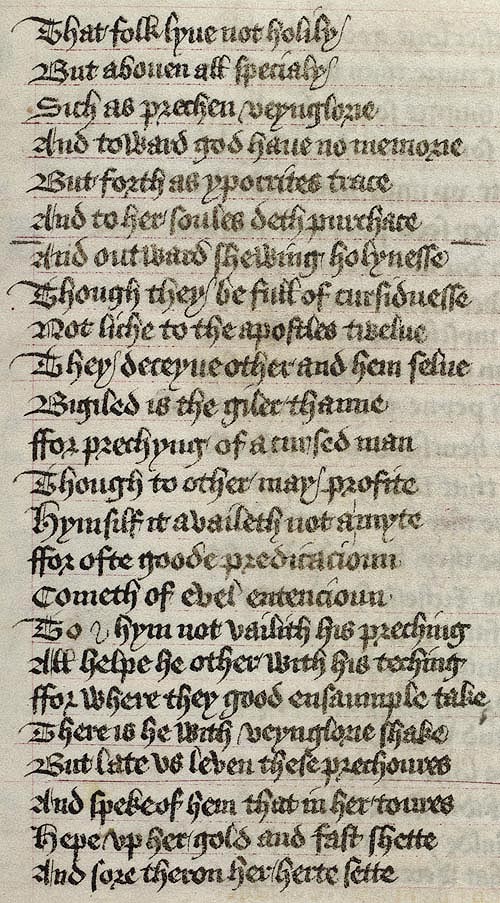 That folk lyve not holily
But aboven all specialy
Sich as prechen veynglorie
And toward god haue no memorie
But forth as ypocrites trace
And to her soules deth purchace
And outward shewing holynesse
Though they be full of cursidnesse
Not liche to the apostles twelue
They deceyue other and hem selue
Bigiled is the giler thanne
ffor prechyng of a cursed man
Though to other may profite
Hymsilf it availeth not a myte
ffor ofte goode predicacioun
Cometh of evel entencioun
To hym not vailith his preching
All helpe he other with his teching
ffor where they good ensaumple take
There is he with veynglorie shake
But late vs leven these prechoures
And speke of hem that in her toures
Hepe vp her gold and fast shette
And sore theron her herte sette